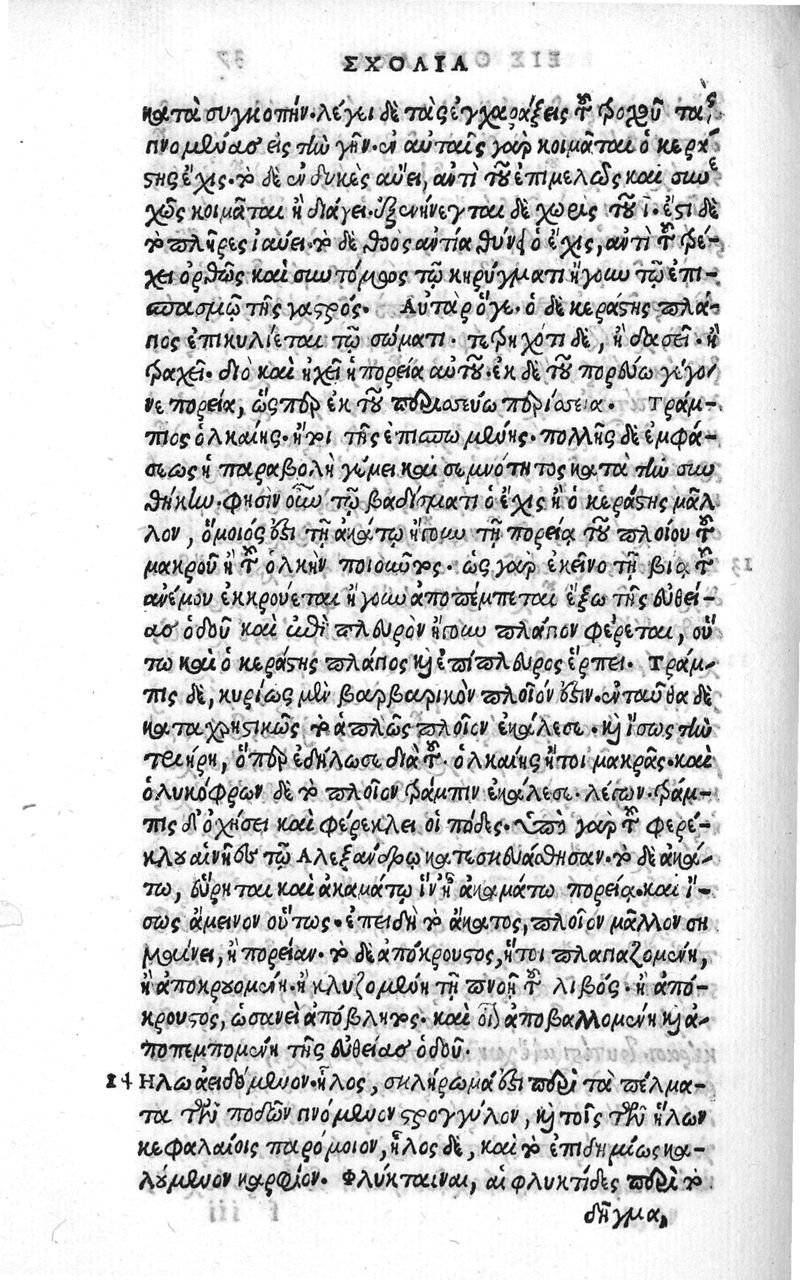 ΣΧΟΛΙΑ
κατὰ συγκοπήν. λέγει δὲ τὰς ἐγχαράξεις τοῦ τροχοῦ τὰς
γινομένας εἰς τὴν γῆν. ἐν αὐταῖς γὰρ κοιμᾶται ὁ κερά
στης ἔχις. τὸ δὲ ἐνδυκὲς αὔει, ἀντὶ τοῦ ἐπιμελῶς καὶ συνε
χῶς κοιμᾶται ἢ διάγει. ἐξενήνεγται δὲ χωρὶς τοῦ ι. ἔστι δὲ
τὸ πλῆρες ἰαύει. τὸ δὲ θοὸς ἀντία θύνει ὁ ἔχις, ἀντὶ τοῦ τρέ-
χει ὀρθῶς καὶ συντόμως τῷ κηρύγματι ἤγουν τῷ ἐπι-
σπασμῷ τῆς γαστρός. Αὐτὰρ ὅγε. ὁ δὲ κεράστης πλά-
γιος ἐπικυλίεται τῷ σώματι. τετρηχότι δὲ, ἢ δασεῖ. ἢ
τραχεῖ. διὸ καὶ ἠχεῖ ἡ πορεία αὐτοῦ. ἐκ δὲ τοῦ πορεύω γέγο-
νε πορεία, ὥσπερ ἐκ τοῦ περισσεύω περίσσεια. Τράμ-
πιος ὁλκαίης. ἤτοι τῆς ἐπισπωμένης. πολλῆς δὲ ἐμφά-
σεως ἡ παραβολὴ γέμει καὶ σεμνότητος κατὰ τὴν συν
θήκην. φησὶν οὖν τῷ βαδίσματι ὁ ἔχις ἢ ὁ κεράστης μᾶλ
λον, ὅμοιός ἐστι τῇ ἀκάτῳ ἤγουν τῇ πορείᾳ τοῦ πλοίου τοῦ
μακροῦ ἢ τοῦ ὁλκὴν ποιοῦντος. ὡς γὰρ ἐκεῖνο τῇ βίᾳ τοῦ
ἀνέμου ἐκκρούεται ἤγουν ἀποπέμπεται ἔξω τῆς εὐθεί-
ας ὁδοῦ καὶ ἐπὶ πλευρὸν ἤγουν πλάγιον φέρεται, οὕ
τω καὶ ὁ κεράστης πλάγιος καὶ ἐπίπλευρος ἕρπει. Τράμ-
πις δὲ, κυρίως μὲν βαρβαρικὸν πλοῖόν ἐστιν. ἐνταῦθα δὲ
καταχρηστικῶς τὸ ἁπλῶς πλοῖον ἐκάλεσε. καὶ ἴσως τὴν
τριήρη, ὅπερ ἐδήλωσε διὰ τοῦ. ὁλκαίης ἤτοι μακρᾶς. καὶ
ὁ λυκόφρων δὲ τὸ πλοῖον τράμπιν ἐκάλεσε. λέγων. τράμ-
πις δ' ὀχήσει καὶ φέρεκλει οἱ πόδες. ὑπὸ γὰρ τοῦ φερέ-
κλου αἱ νῆες τῷ Ἀλεξάνδρῳ κατεσκευάσθησαν. τὸ δὲ ἀκά-
τῳ, εὕρηται καὶ ἀκαμάτῳ ἵν' ᾖ ἀκαμάτῳ πορείᾳ. καὶ ἴ-
σως ἄμεινον οὕτως. ἐπειδὴ τὸ ἄκατος, πλοῖον μᾶλλον ση
μαίνει, ἢ πορείαν. τὸ δὲ ἀπόκρουστος, ἤτοι πλαγιαζομένη,
ἢ ἀποκρουομένη. ἢ κλυζομένη τῇ πνοῇ τοῦ λιβός. ἢ ἀπό-
κρουστος, ὡσανεὶ ἀπόβλητος. καὶ οἷον ἀποβαλλομένη καὶ ἀ-
ποπεμπομένη τῆς εὐθείας ὁδοῦ.
14 Ηλῳ ἀειδόμενον. ἧλος, σκλήρωμά ἐστι περὶ τὰ πέλμα-
τα τῶν ποδῶν γινόμενον στρογγύλον, καὶ τοῖς τῶν ἥλων
κεφαλαίοις παρόμοιον, ἧλος δὲ, καὶ τὸ ἐπιδημίως κα-
λούμενον καρφίον. Φλύκταιναι, αἱ φλυκτίδες περὶ τὸ
δῆγμα,